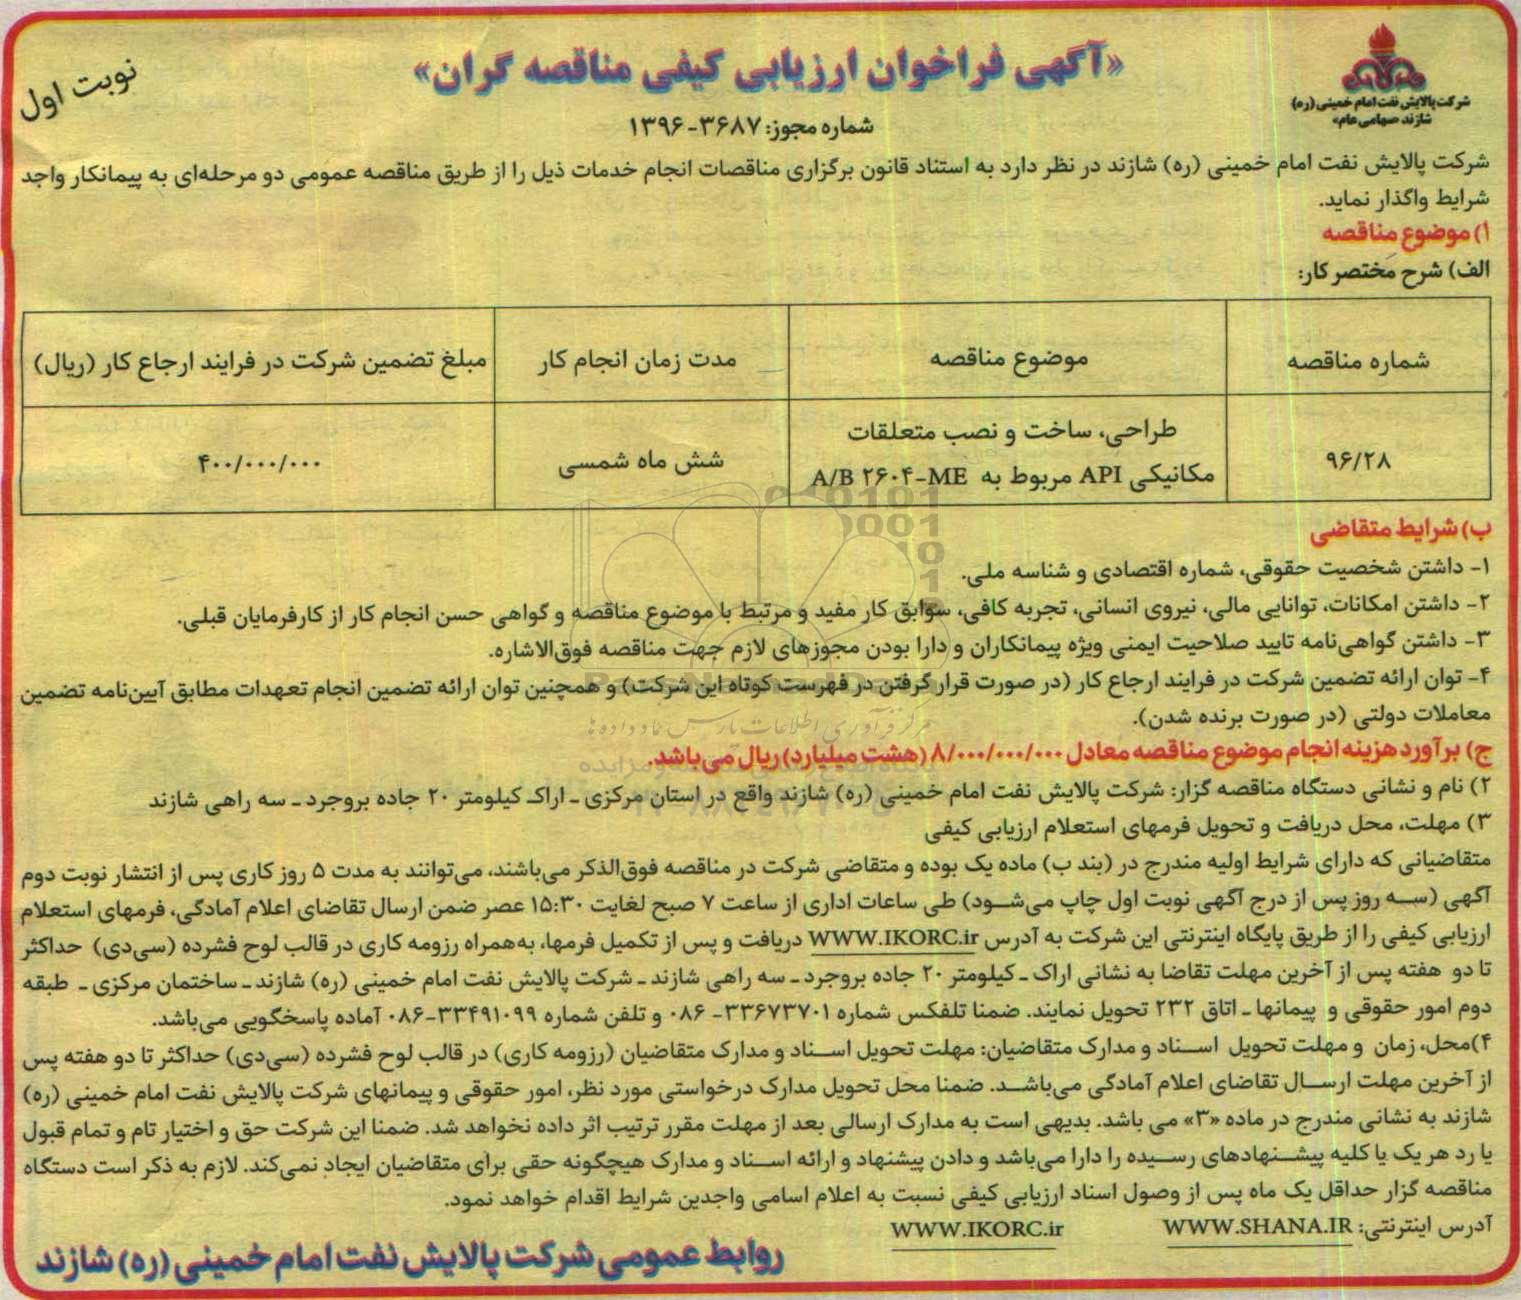 شرکت پالایش نفت امام خمینی (ره)
شازند «سهامی عام»
«آگهی فراخوان ارزیابی کیفی مناقصه گران»
نوبت اول
شماره مجوز: ۳۶۸۷-۱۳۹۶
شرکت پالایش نفت امام خمینی (ره) شازند در نظر دارد به استناد قانون برگزاری مناقصات انجام خدمات ذیل را از طریق مناقصه عمومی دو مرحله‌ای به پیمانکار واجد
شرایط واگذار نماید.
۱) موضوع مناقصه
الف) شرح مختصر کار:
شماره مناقصه
موضوع مناقصه
مدت زمان انجام کار
مبلغ تضمین شرکت در فرایند ارجاع کار (ریال)
۹۶/۲۸
طراحی، ساخت و نصب متعلقات
مکانیکی API مربوط به A/B ۲۶۰۴-ME
شش ماه شمسی
۴۰۰/۰۰۰/۰۰۰
ب) شرایط متقاضی
۱- داشتن شخصیت حقوقی، شماره اقتصادی و شناسه ملی.
۲- داشتن امکانات، توانایی مالی، نیروی انسانی، تجربه کافی، سوابق کار مفید و مرتبط با موضوع مناقصه و گواهی حسن انجام کار از کارفرمایان قبلی.
۳- داشتن گواهی‌نامه تایید صلاحیت ایمنی ویژه پیمانکاران و دارا بودن مجوزهای لازم جهت مناقصه فوق‌الاشاره.
۴- توان ارائه تضمین شرکت در فرایند ارجاع کار (در صورت قرار گرفتن در فهرست کوتاه این شرکت) و همچنین توان ارائه تضمین انجام تعهدات مطابق آیین‌نامه تضمین
معاملات دولتی (در صورت برنده شدن).
ج) برآورد هزینه انجام موضوع مناقصه معادل ۸/۰۰۰/۰۰۰/۰۰۰ (هشت میلیارد) ریال می‌باشد.
۲) نام و نشانی دستگاه مناقصه گزار: شرکت پالایش نفت امام خمینی (ره) شازند واقع در استان مرکزی ـ اراک کیلومتر ۲۰ جاده بروجرد ـ سه راهی شازند
۳) مهلت، محل دریافت و تحویل فرمهای استعلام ارزیابی کیفی
متقاضیانی که دارای شرایط اولیه مندرج در (بند ب) ماده یک بوده و متقاضی شرکت در مناقصه فوق‌الذکر می‌باشند، می‌توانند به مدت ۵ روز کاری پس از انتشار نوبت دوم
آگهی (سه روز پس از درج آگهی نوبت اول چاپ می‌شود) طی ساعات اداری از ساعت ۷ صبح لغایت ۱۵:۳۰ عصر ضمن ارسال تقاضای اعلام آمادگی، فرمهای استعلام
ارزیابی کیفی را از طریق پایگاه اینترنتی این شرکت به آدرس WWW.IKORC.ir دریافت و پس از تکمیل فرمها، به‌همراه رزومه کاری در قالب لوح فشرده (سی‌دی) حداکثر
تا دو هفته پس از آخرین مهلت تقاضا به نشانی اراک ـ کیلومتر ۲۰ جاده بروجرد ـ سه راهی شازند ـ شرکت پالایش نفت امام خمینی (ره) شازند ـ ساختمان مرکزی ـ طبقه
دوم امور حقوقی و پیمانها ـ اتاق ۲۳۲ تحویل نمایند. ضمنا تلفکس شماره ۳۳۶۷۳۷۰۱- ۰۸۶ و تلفن شماره ۳۳۴۹۱۰۹۹-۰۸۶ آماده پاسخگویی می‌باشد.
۴)محل، زمان و مهلت تحویل اسناد و مدارک متقاضیان: مهلت تحویل اسناد و مدارک متقاضیان (رزومه کاری) در قالب لوح فشرده (سی‌دی) حداکثر تا دو هفته پس
از آخرین مهلت ارسال تقاضای اعلام آمادگی می‌باشد. ضمنا محل تحویل مدارک درخواستی مورد نظر، امور حقوقی و پیمانهای شرکت پالایش نفت امام خمینی (ره)
شازند به نشانی مندرج در ماده «۳» می باشد. بدیهی است به مدارک ارسالی بعد از مهلت مقرر ترتیب اثر داده نخواهد شد. ضمنا این شرکت حق و اختیار تام و تمام قبول
یا رد هر یک یا کلیه پیشنهادهای رسیده را دارا می‌باشد و دادن پیشنهاد و ارائه اسناد و مدارک هیچگونه حقی برای متقاضیان ایجاد نمی‌کند. لازم به ذکر است دستگاه
مناقصه گزار حداقل یک ماه پس از وصول اسناد ارزیابی کیفی نسبت به اعلام اسامی واجدین شرایط اقدام خواهد نمود.
آدرس اینترنتی: WWW.SHANA.IR WWW.IKORC.ir
روابط عمومی شرکت پالایش نفت امام خمینی (ره) شازند